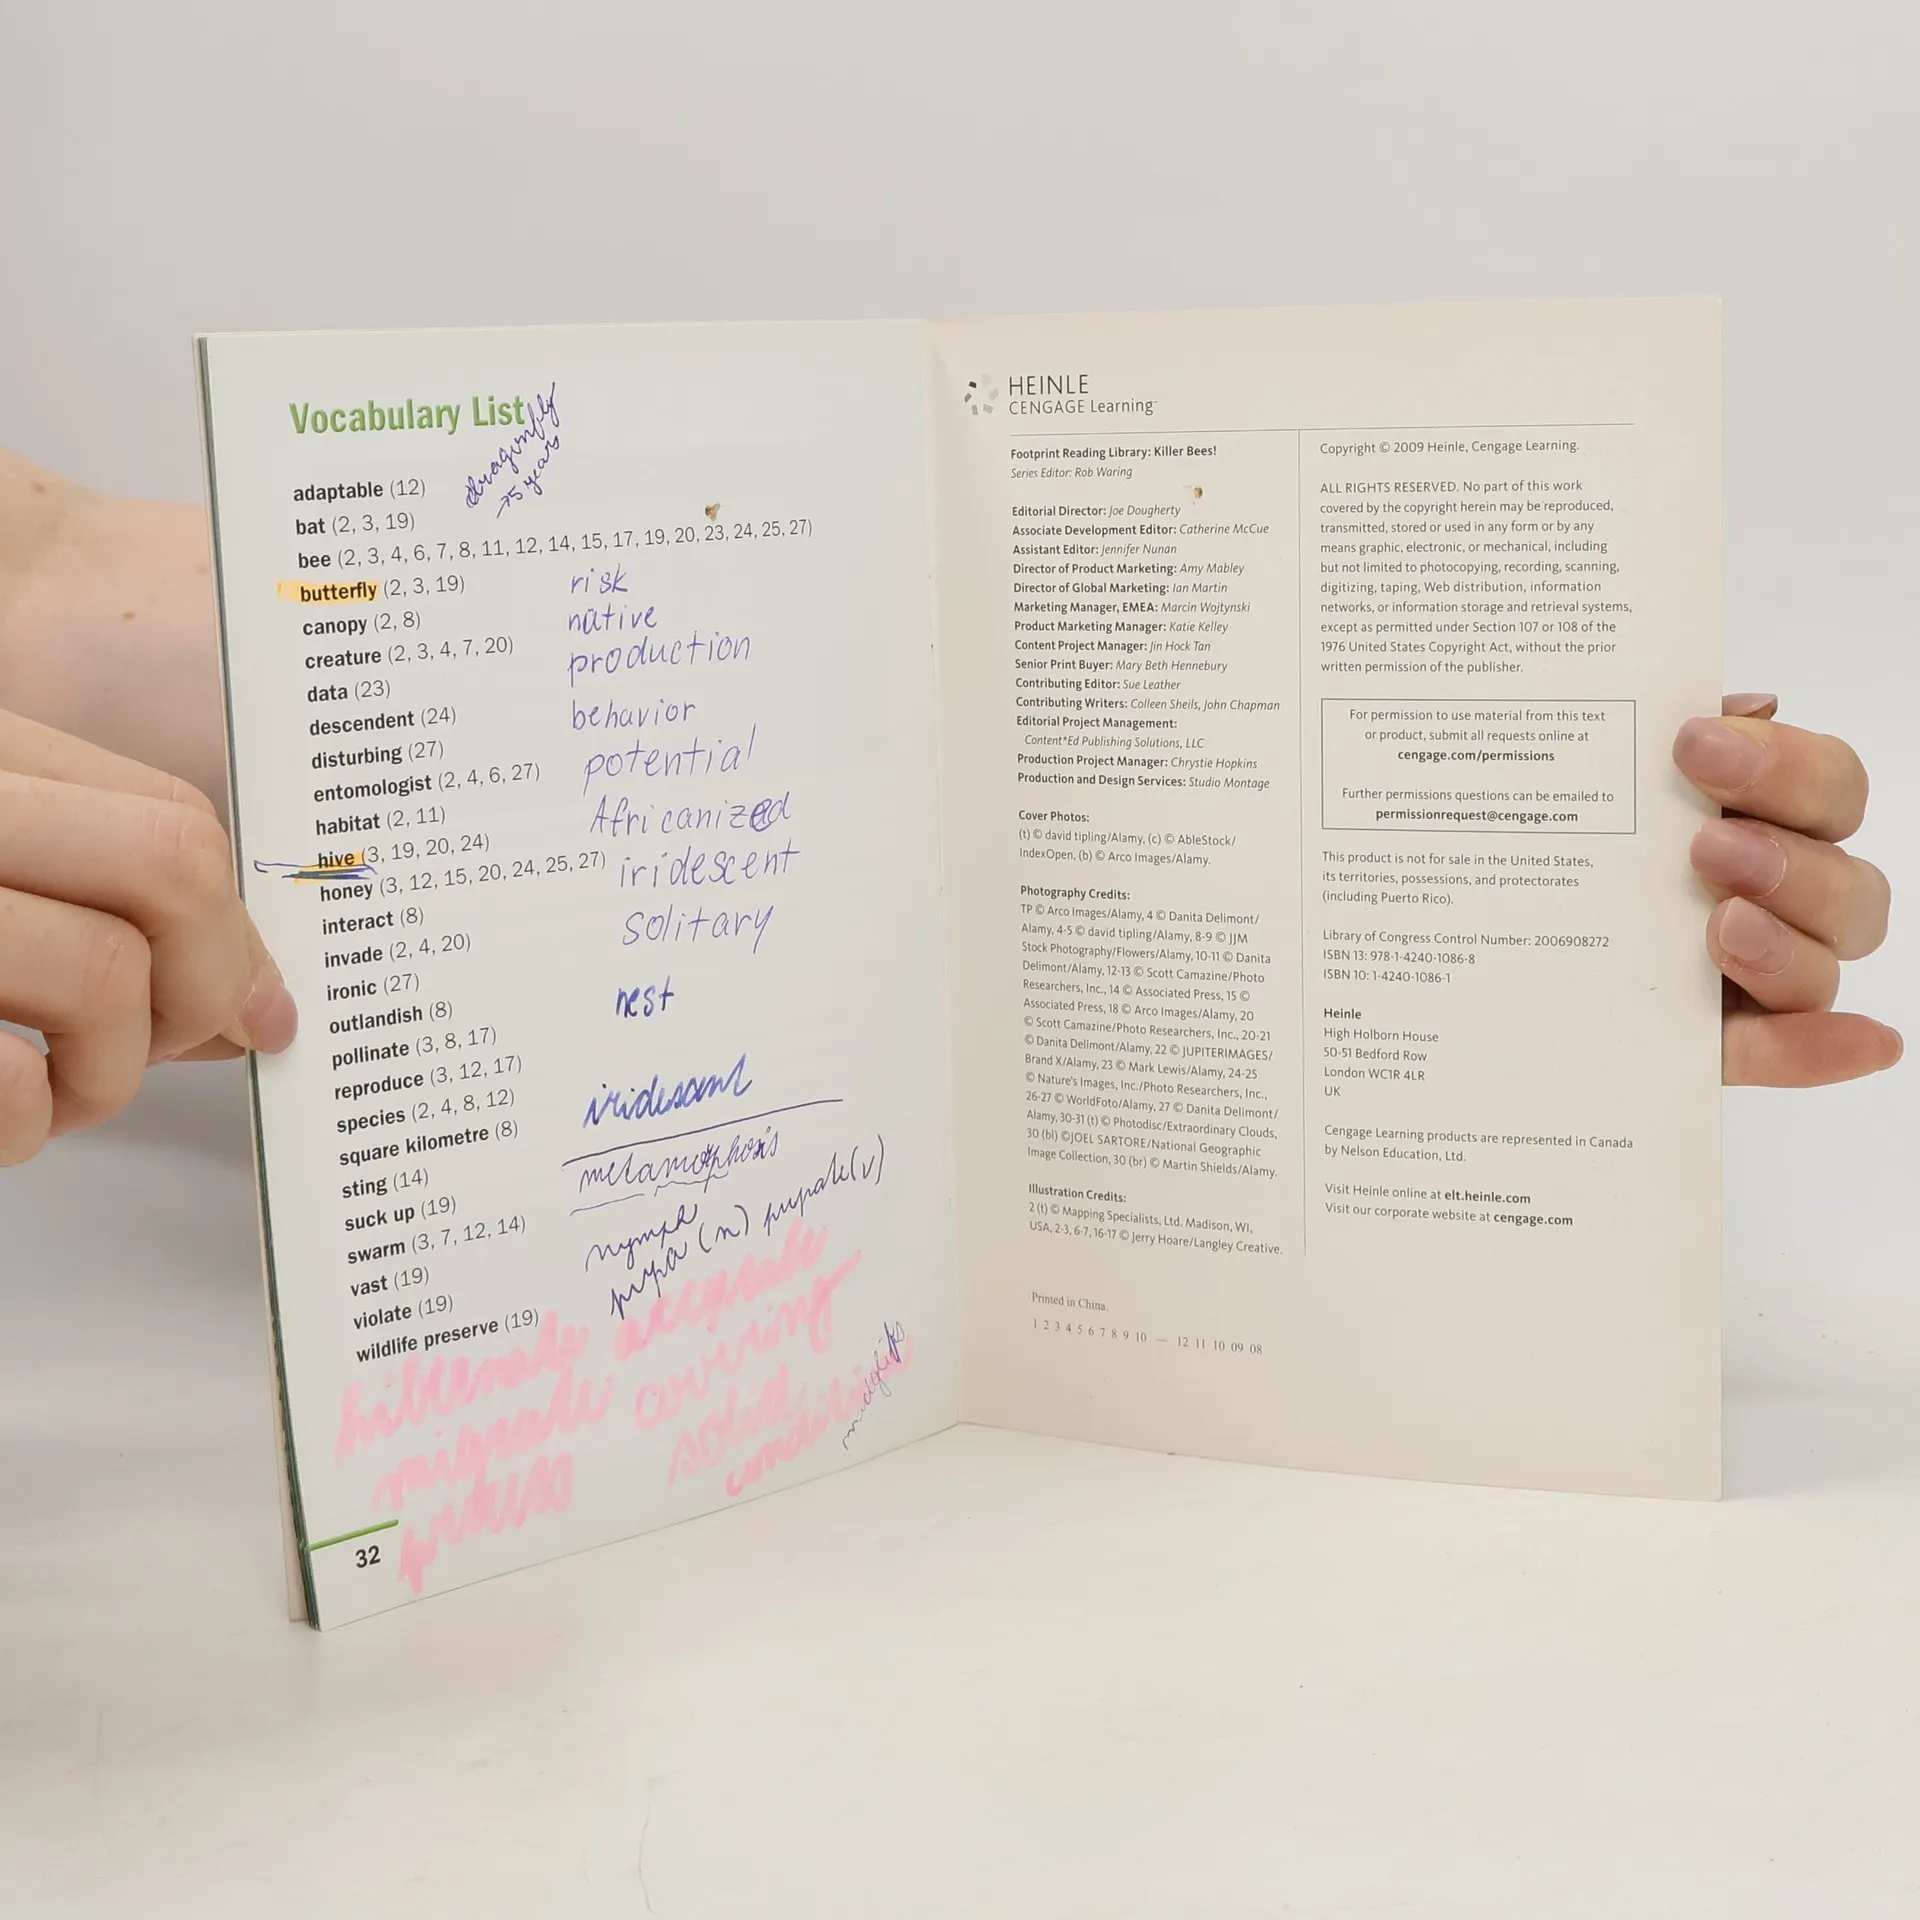 Vocabulary List
dragonfly
→5 years
adaptable (12)
bat (2, 3, 19)
bee (2, 3, 4, 6, 7, 8, 11, 12, 14, 15, 17, 19, 20, 23, 24, 25, 27)
butterfly (2, 3, 19)
canopy (2, 8)
creature (2, 3, 4, 7, 20)
data (23)
descendent (24)
disturbing (27)
entomologist (2, 4, 6, 27)
habitat (2, 11)
hive (3, 19, 20, 24)
honey (3, 12, 15, 20, 24, 25, 27)
interact (8)
invade (2, 4, 20)
ironic (27)
outlandish (8)
pollinate (3, 8, 17)
reproduce (3, 12, 17)
species (2, 4, 8, 12)
square kilometre (8)
sting (14)
suck up (19)
swarm (3, 7, 12, 14)
vast (19)
violate (19)
wildlife preserve (19)
risk
native
production
behavior
potential
Africanized
iridescent
solitary
nest
iridescent
metamorphosis
nymph
pupa (n) pupate (v)
hibernate
migrate covering
process solid
32
HEINLE
CENGAGE Learning™
Footprint Reading Library: Killer Bees!
Series Editor: Rob Waring
Editorial Director: Joe Dougherty
Associate Development Editor: Catherine McCue
Assistant Editor: Jennifer Nunan
Director of Product Marketing: Amy Mabley
Director of Global Marketing: Ian Martin
Marketing Manager, EMEA: Marcin Wojtynski
Product Marketing Manager: Katie Kelley
Content Project Manager: Jin Hock Tan
Senior Print Buyer: Mary Beth Hennebury
Contributing Editor: Sue Leather
Contributing Writers: Colleen Sheils, John Chapman
Editorial Project Management:
Content*Ed Publishing Solutions, LLC
Production Project Manager: Chrystie Hopkins
Production and Design Services: Studio Montage
Cover Photos:
(t) © david tipling/Alamy, (c) © AbleStock/
IndexOpen, (b) © Arco Images/Alamy.
Photography Credits:
TP © Arco Images/Alamy, 4 © Danita Delimont/
Alamy, 4-5 © david tipling/Alamy, 8-9 © JJM
Stock Photography/Flowers/Alamy, 10-11 © Danita
Delimont/Alamy, 12-13 © Scott Camazine/Photo
Researchers, Inc., 14 © Associated Press, 15 ©
Associated Press, 18 © Arco Images/Alamy, 20
© Scott Camazine/Photo Researchers, Inc., 20-21
© Danita Delimont/Alamy, 22 © JUPITERIMAGES/
Brand X/Alamy, 23 © Mark Lewis/Alamy, 24-25
© Nature's Images, Inc./Photo Researchers, Inc.,
26-27 © WorldFoto/Alamy, 27 © Danita Delimont/
Alamy, 30-31 (t) © Photodisc/Extraordinary Clouds,
30 (bl) ©JOEL SARTORE/National Geographic
Image Collection, 30 (br) © Martin Shields/Alamy.
Illustration Credits:
2 (t) © Mapping Specialists, Ltd. Madison, WI,
USA, 2-3, 6-7, 16-17 © Jerry Hoare/Langley Creative.
Printed in China.
1 2 3 4 5 6 7 8 9 10 — 12 11 10 09 08
Copyright © 2009 Heinle, Cengage Learning.
ALL RIGHTS RESERVED. No part of this work
covered by the copyright herein may be reproduced,
transmitted, stored or used in any form or by any
means graphic, electronic, or mechanical, including
but not limited to photocopying, recording, scanning,
digitizing, taping, Web distribution, information
networks, or information storage and retrieval systems,
except as permitted under Section 107 or 108 of the
1976 United States Copyright Act, without the prior
written permission of the publisher.
For permission to use material from this text
or product, submit all requests online at
cengage.com/permissions
Further permissions questions can be emailed to
permissionrequest@cengage.com
This product is not for sale in the United States,
its territories, possessions, and protectorates
(including Puerto Rico).
Library of Congress Control Number: 2006908272
ISBN 13: 978-1-4240-1086-8
ISBN 10: 1-4240-1086-1
Heinle
High Holborn House
50-51 Bedford Row
London WC1R 4LR
UK
Cengage Learning products are represented in Canada
by Nelson Education, Ltd.
Visit Heinle online at elt.heinle.com
Visit our corporate website at cengage.com